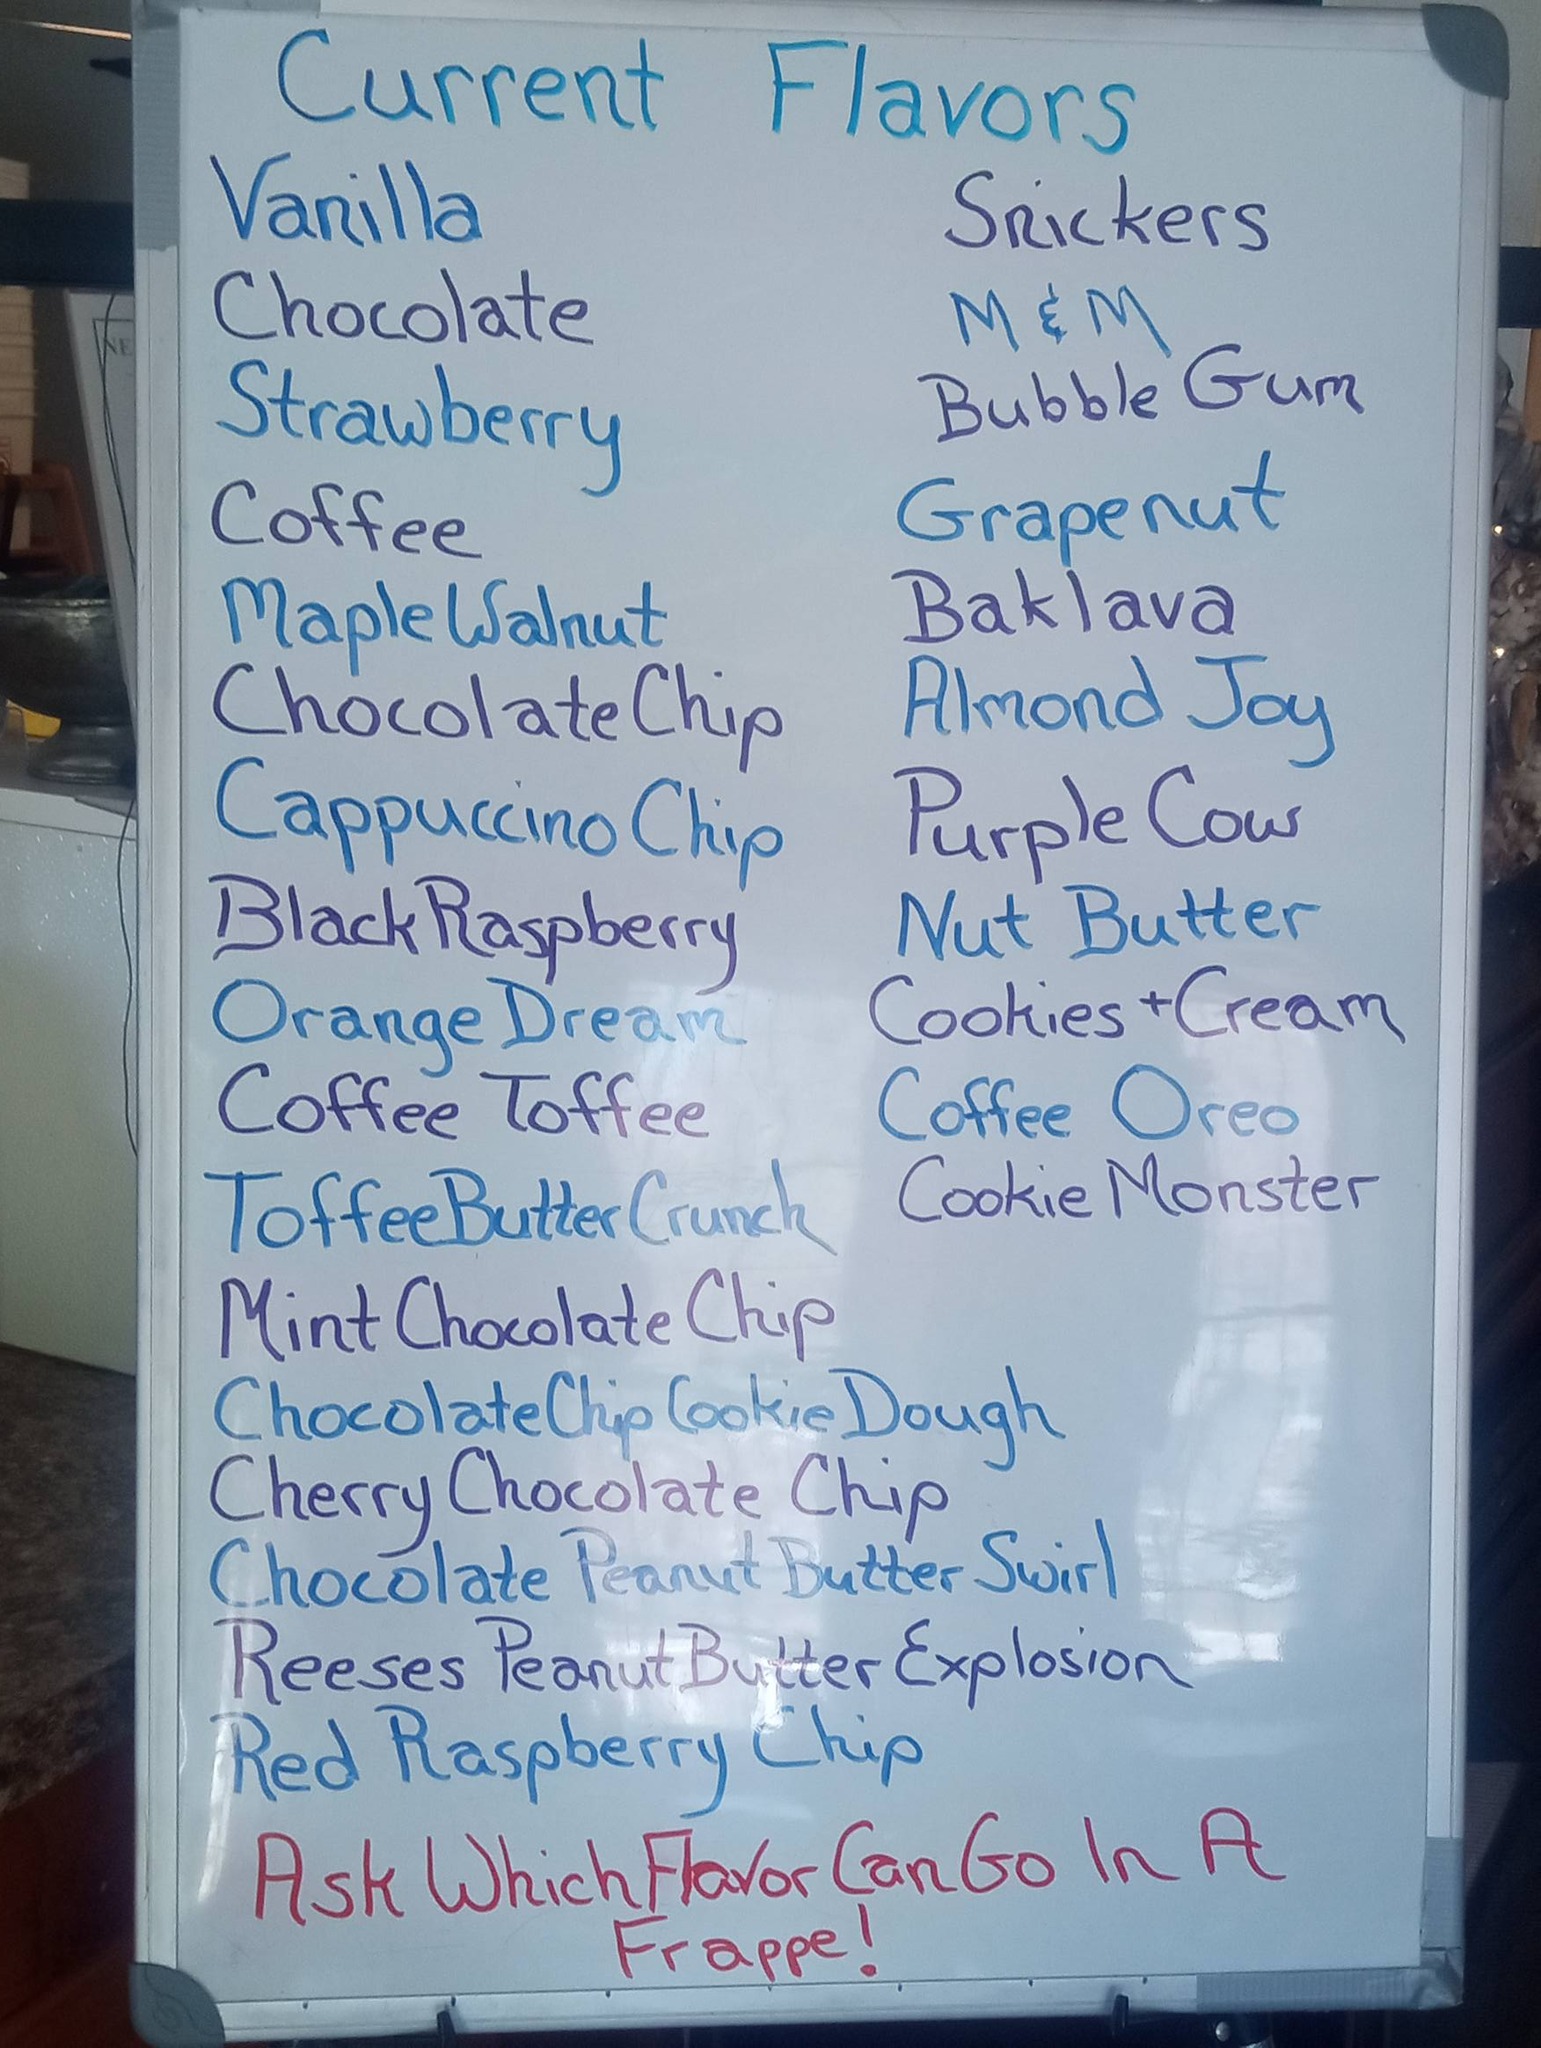 Current Flavors
Vanilla
Chocolate
Strawberry
Coffee
Maple Walnut
Chocolate Chip
Cappuccino Chip
Black Raspberry
Orange Dream
Coffee Toffee
Toffee Butter Crunch
Mint Chocolate Chip
Chocolate Chip Cookie Dough
Cherry Chocolate Chip
Chocolate Peanut Butter Swirl
Reeses Peanut Butter Explosion
Red Raspberry Chip
Snickers
M & M
Bubble Gum
Grapenut
Baklava
Almond Joy
Purple Cow
Nut Butter
Cookies + Cream
Coffee Oreo
Cookie Monster
Ask Which Flavor Can Go In A
Frappe!